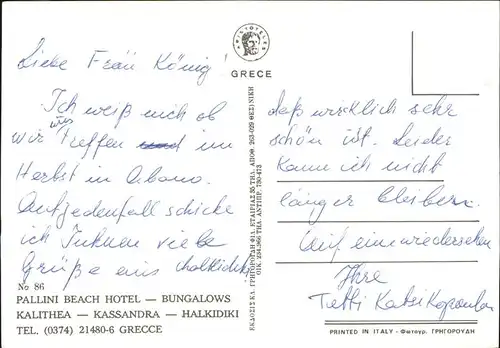 ΑΡΙΣΤΟΤΕΛΗΣ
GRECE
Liebe Frau König!
Ich weiß nich ob
wir uns treffen im
Herbst in Abano.
Aufjedenfall schicke
ich Ihnen viele
Grüße aus Chalkidiki
daß wirklich sehr
schön ist. Leider
kann ich nicht
länger bleiben.
Auf einwiedersehen
Ihre
No 86
PALLINI BEACH HOTEL — BUNGALOWS
KALITHEA — KASSANDRA — HALKIDIKI
TEL. (0374) 21480-6 GRECCE
PRINTED IN ITALY - Φωτογρ. ΓΡΗΓΟΡΟΥΔΗ